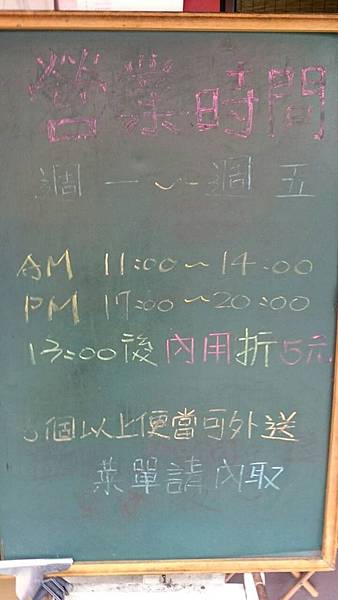 營業時間
週一~週五
AM 11:00~14:00
PM 17:00~20:00
13:00後內用折5元
5個以上便當可外送
菜單請內取